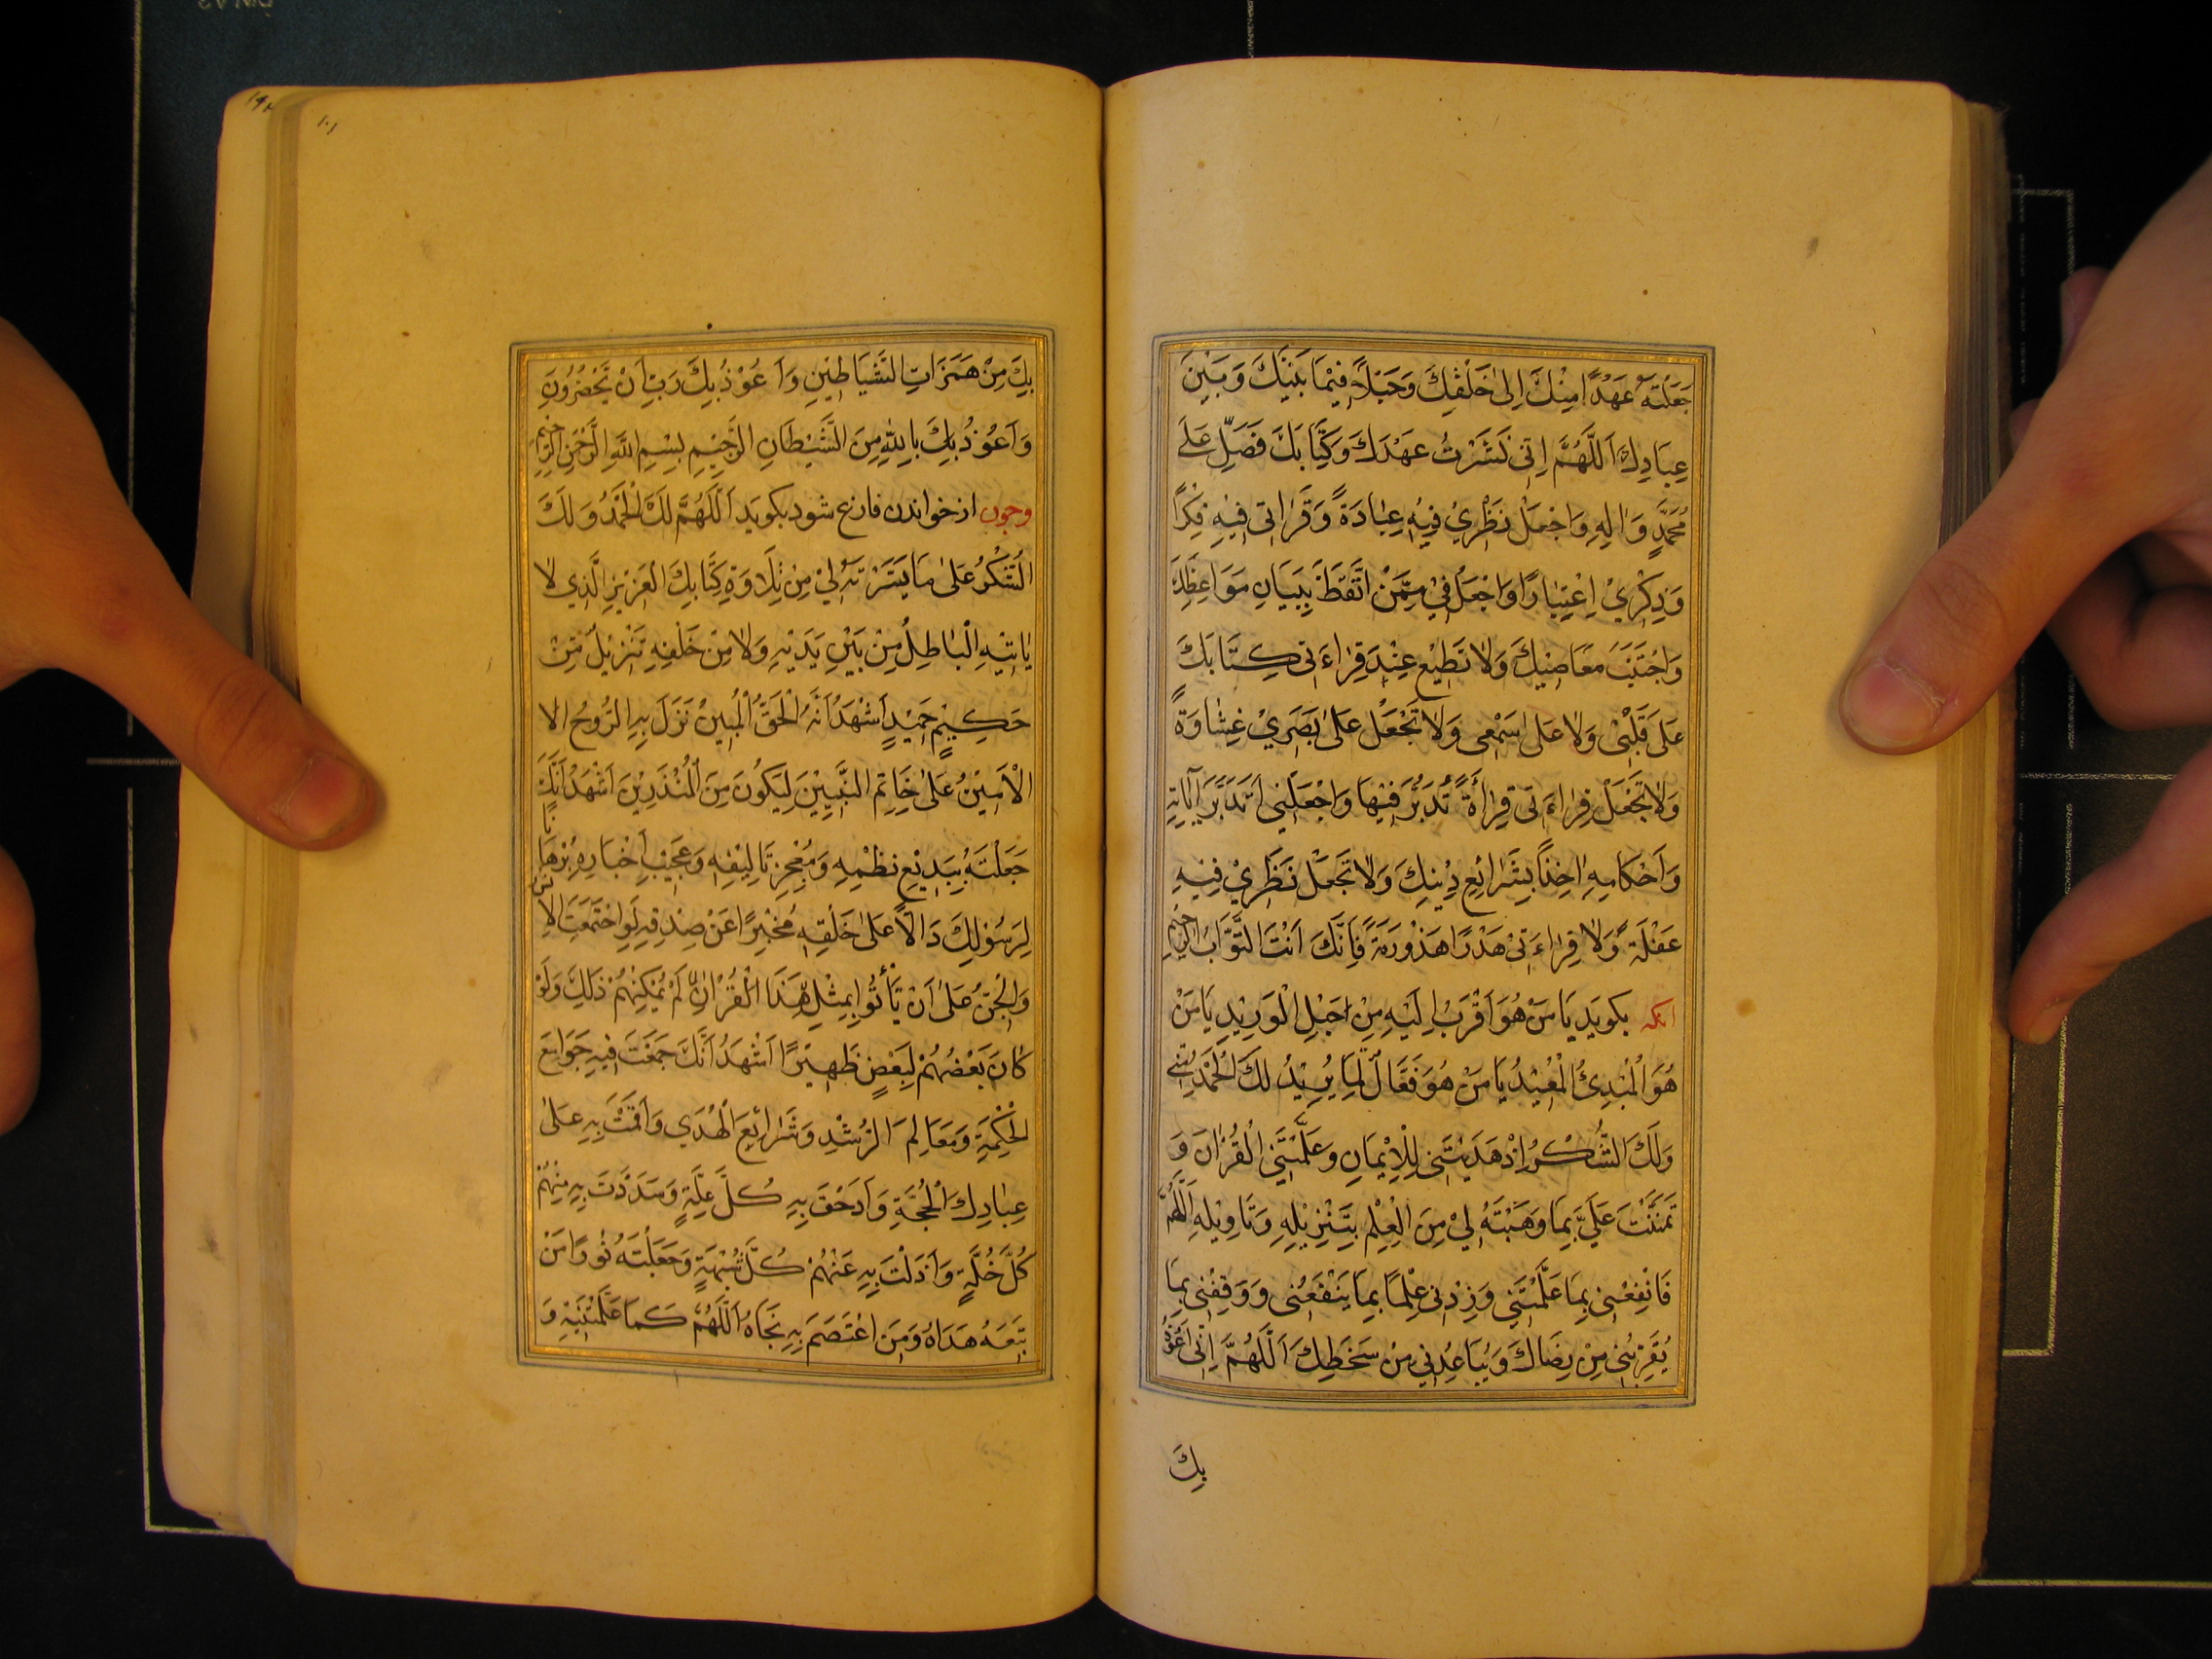 جَعَلْتَهُ عَهْدًا مِنْكَ اِلىٰ خَلْقِكَ وَحَبْلًا فِيْمَا بَيْنَكَ وَبَيْنَ
عِبَادِكَ اَللّٰهُمَّ اِنّى نَشَرْتُ عَهْدَكَ وَكِتَابَكَ فَصَلِّ عَلىٰ
مُحَمَّدٍ وَاٰلِهِ وَاجْعَلْ نَظَرِيْ فِيْهِ عِبَادَةً وَقَرٰاتى فِيْهِ فِكْرًا
وَذِكْرِيْ اِعْتِبَارًا وَاجْعَلْنِي مِمَّنْ اتَّعَظَ بِبَيَانِ مَوَاعِظِكَ
وَاجْتَنَبَ مَعَاصِيْكَ وَلَا تَطْبَعْ عِنْدَ قِرٰاءَتى كِتَابَكَ
عَلىٰ قَلْبِىْ وَلَا عَلىٰ سَمْعى وَلَا تَجْعَلْ عَلىٰ بَصَرِيْ غِشَاوَةً
وَلَا تَجْعَلْ قِرٰاءَتى قِرٰاءَةً تُدَبِّرُ فِيْهَا وَاجْعَلْنِي اَتَدَبَّرُ اٰيَاتِهِ
وَاَحْكَامِهِ اٰخِذًا بِشَرَائِعِ دِيْنِكَ وَلَا تَجْعَلْ نَظَرِيْ فِيْهِ
غَفْلَةً وَلَا قِرٰاءَتىْ هَذْرًا هَذْوَرَةً فَاِنَّكَ اَنْتَ التَّوَّابُ الرَّحِيْمِ
انكه بكويد يَا مَنْ هُوَ اَقْرَبُ اِلَيْهِ مِنْ حَبْلِ الْوَرِيْدِ يَا مَنْ
هُوَ الْمُبْدِئُ الْمُعِيْدُ يَا مَنْ هُوَ فَعَّالٌ لِمَا يُرِيْدُ لَكَ الْحَمْدُ
وَلَكَ الشُّكْرُ اِذْ هَدَيْتَنِي لِلْاِيْمَانِ وَعَلَّمْتَنِي الْقُرْاٰنَ وَ
تَمَنَّنْتَ عَلَيَّ بِمَا وَهَبْتَهُ لِيْ مِنَ الْعِلْمِ بِتَنْزِيْلِهِ وَتَاوِيْلِهِ اَللّٰهُمَّ
فَانْفَعْنِى بِمَا عَلَّمْتَنِي وَزِدْنِى عِلْمًا بِمَا يَنْفَعُنِى وَوَفِّقْنِى بِمَا
يُقَرِّبُنِى مِنْ رِضَاكَ وَيُبَاعِدُنِي مِنْ سَخَطِكَ اَللّٰهُمَّ اِنّى اَعُوْذُ
بِكَ
١٠١
بِكَ مِنْ هَمَزَاتِ الشَّيَاطِيْنِ وَاَعُوْذُ بِكَ رَبِّ اَنْ يَحْضُرُونِ
وَاَعُوْذُ بِكَ بِاللّٰهِ مِنَ الشَّيْطَانِ الرَّجِيْمِ بِسْمِ اللّٰهِ الرَّحْمٰنِ الرَّحِيْمِ
وچون از خواندن فارغ شود بكويد اَللّٰهُمَّ لَكَ الْحَمْدُ وَلَكَ
الشُّكْرُ عَلىٰ مَا يَسَّرْتَهُ لِيْ مِنْ تِلَاوَةِ كِتَابِكَ الْعَزِيْزِ الَّذِي لَا
يَاتِيْهِ الْبَاطِلُ مِنْ بَيْنِ يَدَيْهِ وَلَا مِنْ خَلْفِهِ تَنْزِيْلٌ مِنْ
حَكِيْمٍ حَمِيْدٍ اَشْهَدُ اَنَّهُ الْحَقُّ الْمُبِيْنُ نَزَلَ بِهِ الرُّوحُ الا
الْاَمِيْنُ عَلىٰ خَاتِمِ النَّبِيِّيْنَ لِيَكُونَ مِنَ الْمُنْذَرِيْنَ اَشْهَدُ اَنَّكَ
جَعَلْتَهُ بِبَدِيْعِ نَظْمِهِ وَمُعْجِزِ تَالِيْفِهِ وَعَجِيْبِ اَخْبَارِهِ بُرْهَانًا
لِرَسُوْلِكَ دَالًّا عَلىٰ خَلْقِهِ مُخْبِرًا عَنْ صِدْقِهِ لَوِ اجْتَمَعَتِ الْاِنْسُ
وَالْجِنُّ عَلىٰ اَنْ يَأْتُوا بِمِثْلِ هٰذَا الْقُرْاٰنِ لَمْ يُمْكِنْهُمْ ذٰلِكَ وَلَوْ
كَانَ بَعْضُهُمْ لِبَعْضٍ ظَهِيْرًا اَشْهَدُ اَنَّكَ جَمَعْتَ فِيْهِ جَوَامِعَ
الْحِكْمَةِ وَمَعَالِمَ الرُّشْدِ وَشَرَائِعَ الْهُدَي وَاَقَمْتَ بِهِ عَلىٰ
عِبَادِكَ الْحُجَّةِ وَاَدْحَقَ بِهِ كُلَّ عِلَّةٍ وَسَدَدْتَ بِهِ مِنْهُمْ
كُلَّ خُلَّةٍ وَاَزَلْتَ بِهِ عَنْهُمْ كُلَّ شُبْهَةٍ وَجَعَلْتَهُ نُوْرًا مَنْ
تَبِعَهُ هَدَاهُ وَمَنِ اعْتَصَمَ بِهِ نَجَاهُ اَللّٰهُمَّ كَمَا عَلَّمْتَنِيْهِ وَ